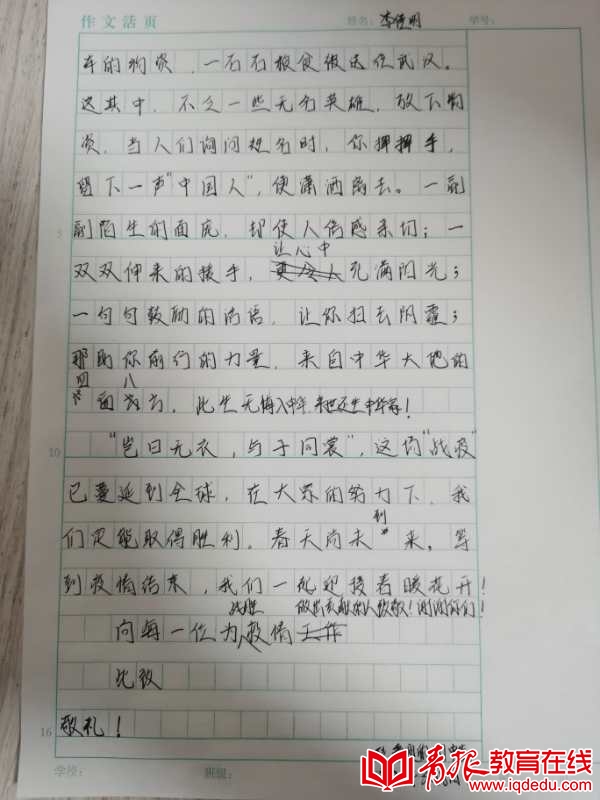 作文活页 姓名： 学号：
车的物资，一石石粮食被送往武汉。
这其中，不乏一些无名英雄，放下物
资，当人们询问姓名时，你挥挥手，
留下一声“中国人”，便潇洒离去。一副
副陌生的面庞，却使人倍感亲切；一
让心中
双双伸来的援手，充满阳光；
一句句鼓励的话语，让你扫去阴霾；
那助你前行的力量，来自中华大地的
四 八
面 方，此生无悔入中华，来世还生中华家！
10 “岂曰无衣，与子同裳”，这场“战疫”
已蔓延到全球，在大家的努力下，我
们定能取得胜利。春天尚未到来，等
到疫情结束，我们一起迎接春暖花开！
战胜 做出贡献的人致敬！谢谢你们！
向每一位为疫情
此致
16 敬礼！
学校： 班级：
青报教育在线
www.iqdedu.com